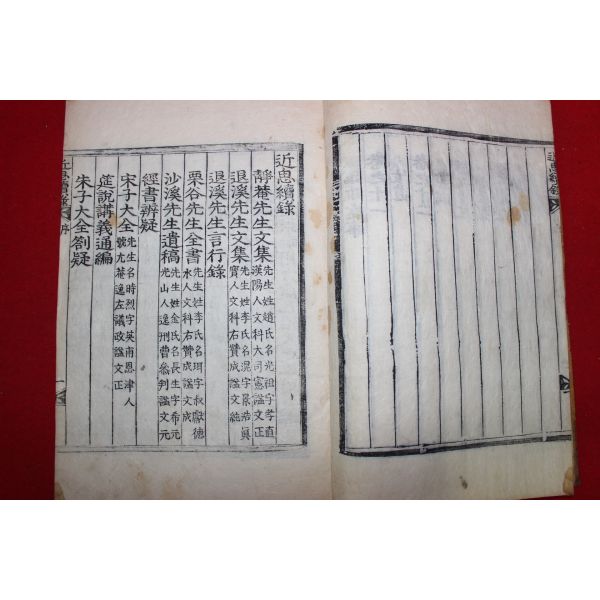 近思續錄
近思續錄
靜菴先生文集 先生姓趙氏名光祖字孝直
漢陽人文科大司憲謚文正
退溪先生文集 先生姓李氏名滉字景浩眞
寶人文科右贊成謚文純
退溪先生言行錄
栗谷先生全書 先生姓李氏名珥字叔獻德
水人文科右贊成謚文成
沙溪先生遺稿 先生姓金氏名長生字希元
光山人逸刑曹參判謚文元
經書辨疑
宋子大全 先生名時烈字英甫恩津人
號尤菴逸左議政謚文正
筵說講義通編
朱子大全劄疑
近思續錄 序
一